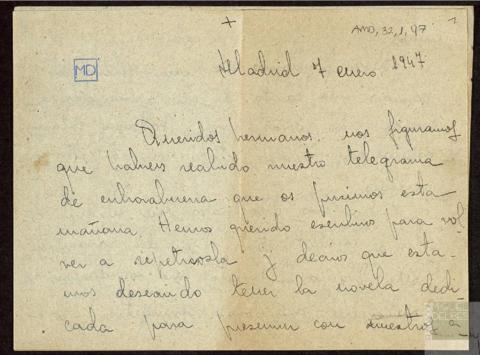 +
AMD, 32, 1, 97
1
MD
Madrid 7 enero 1947
Queridos hermanos: nos figuramos
que habreis recibido nuestro telegrama
de enhorabuena que os pusimos esta
mañana. Hemos querido escribiros para vol-
ver a repetirosla y deciros que esta-
mos deseando tener la novela dedi
cada para presumir con nuestros a